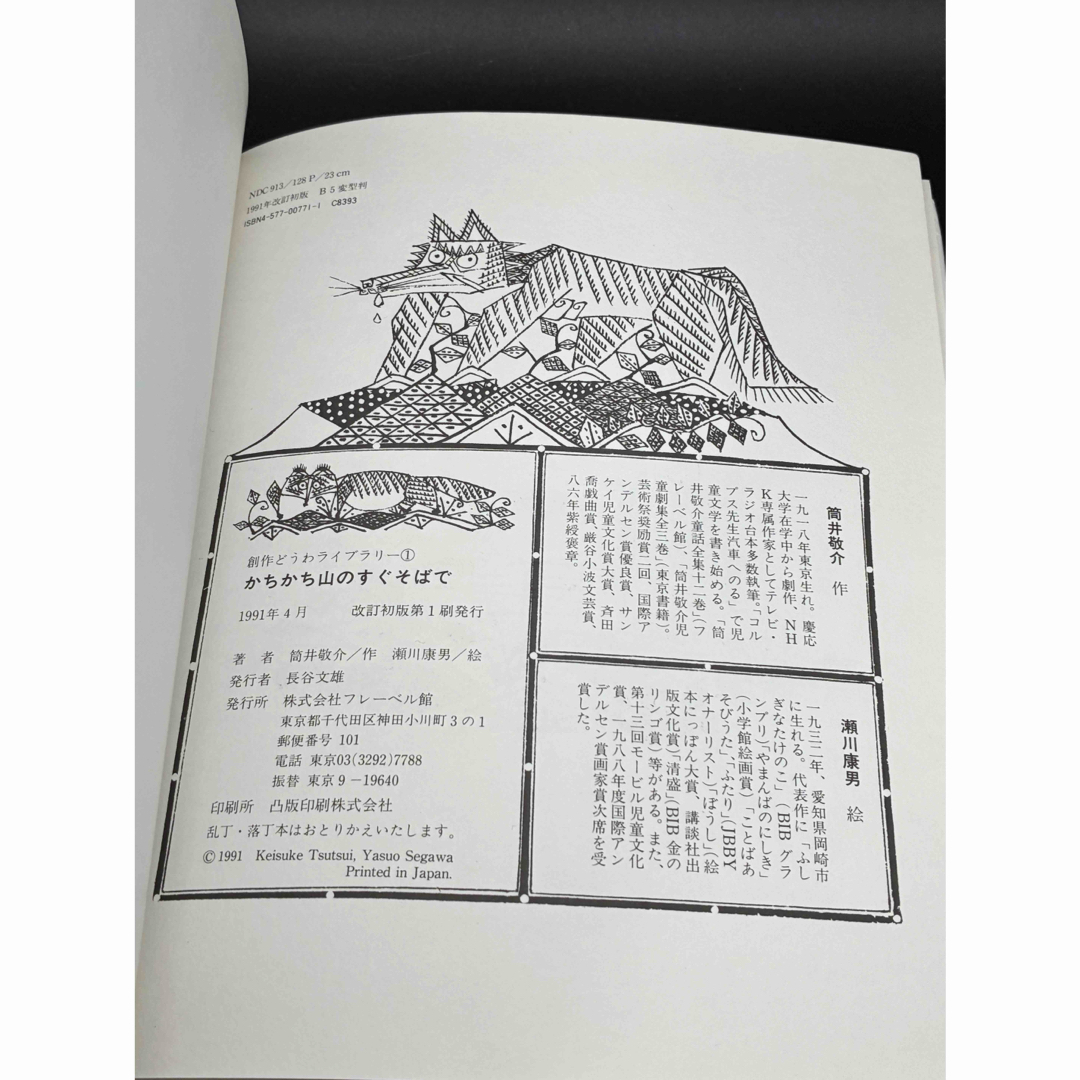 NDC 913/128 P/23 cm
1991年改訂初版 B5変型判
ISBN4-577-00771-1 C8393
創作どうわライブラリー①
かちかち山のすぐそばで
1991年4月 改訂初版第1刷発行
著者 筒井敬介/作 瀬川康男/絵
発行者 長谷文雄
発行所 株式会社フレーベル館
東京都千代田区神田小川町3の1
郵便番号 101
電話 東京03(3292)7788
振替 東京9-19640
印刷所 凸版印刷株式会社
乱丁・落丁本はおとりかえいたします。
©1991 Keisuke Tsutsui, Yasuo Segawa
Printed in Japan.
筒井敬介 作
一九一八年東京生れ。慶応
大学在学中から劇作、NH
K専属作家としてテレビ・
ラジオ台本多数執筆。「コル
プス先生汽車へのる」で児
童文学を書き始める。「筒
井敬介童話全集十二巻」(フ
レーベル館)、「筒井敬介児
童劇集全三巻」(東京書籍)。
芸術祭奨励賞二回、国際ア
ンデルセン賞優良賞、サン
ケイ児童文化賞大賞、斉田
喬戯曲賞、巌谷小波文芸賞、
八六年紫綬褒章。
瀬川康男 絵
一九三二年、愛知県岡崎市
に生れる。代表作に「ふし
ぎなたけのこ」(BIB グラ
ンプリ)「やまんばのにしき」
(小学館絵画賞)「ことばあ
そびうた」、「ふたり」(JBBY
オナーリスト)「ぼうし」(絵
本にっぽん大賞、講談社出
版文化賞)「清盛」(BIB 金の
リンゴ賞)等がある。また、
第十三回モービル児童文化
賞、一九八八年度国際アン
デルセン賞画家賞次席を受
賞した。